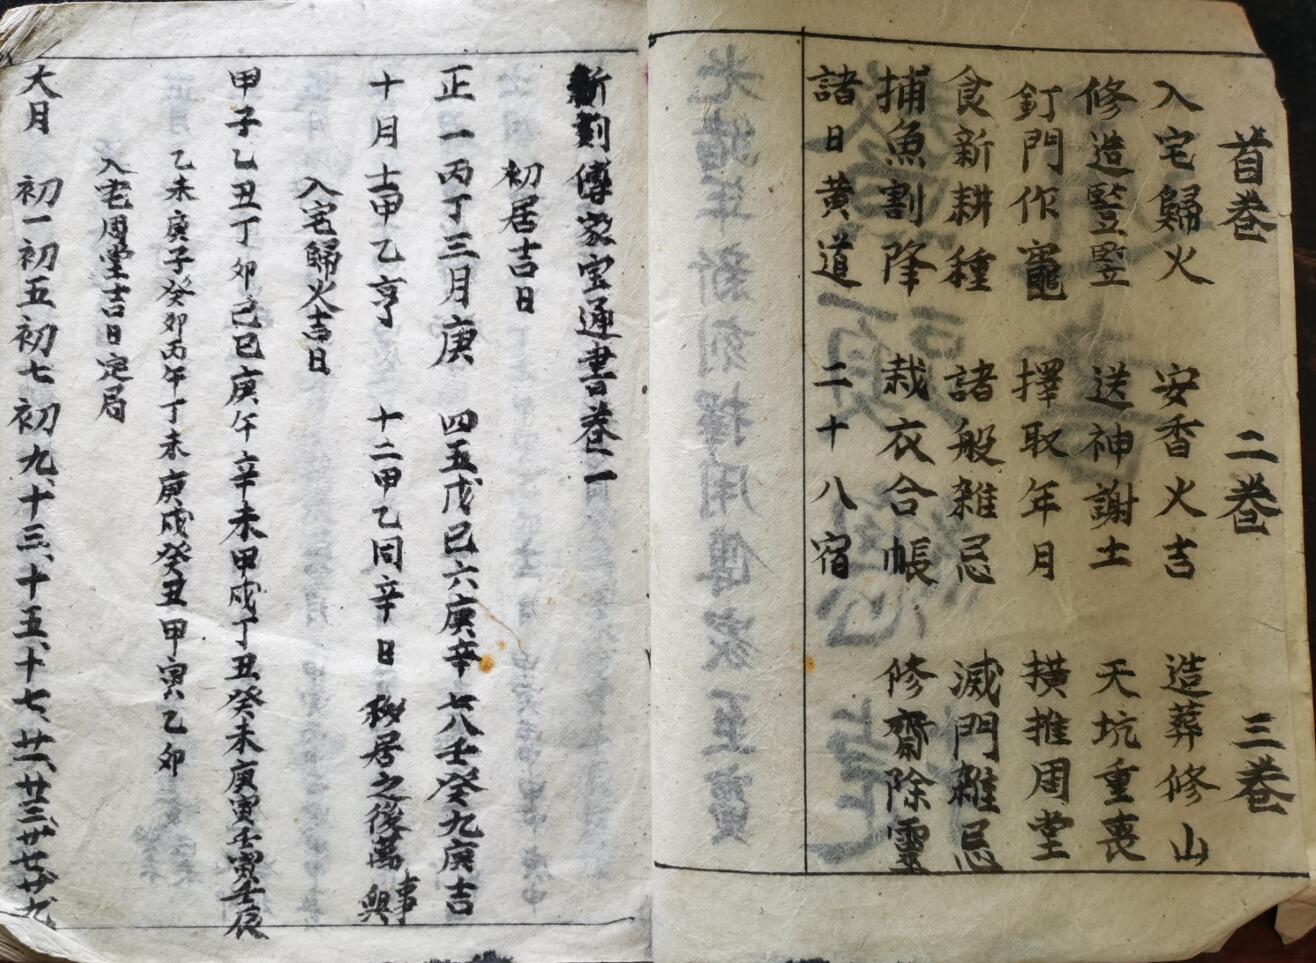 首卷 二卷 三卷
入宅歸火 安香火吉 造葬修山
修造豎竪 送神謝土 天坑重喪
釘門作竈 擇取年月 橫推周堂
食新耕種 諸般雜忌 滅門雜忌
捕魚割降 裁衣合帳 修齋除靈
諸日黄道 二十八宿
新刻傳家宝通書卷一
初居吉日
正一丙丁三月庚 四五戊己六庚辛七八壬癸九庚吉
十月士甲乙亨 十二甲乙同辛日 移居之後萬事興
入宅歸火吉日
甲子乙丑丁卯己巳庚午辛未甲戌丁丑癸未庚寅壬寅壬辰
乙未庚子癸卯丙午丁未庚戌癸丑甲寅乙卯
入宅周堂吉日定局
大月 初一初五初七初九、十三、十五、十七、廿一、廿三、廿七、廿九、